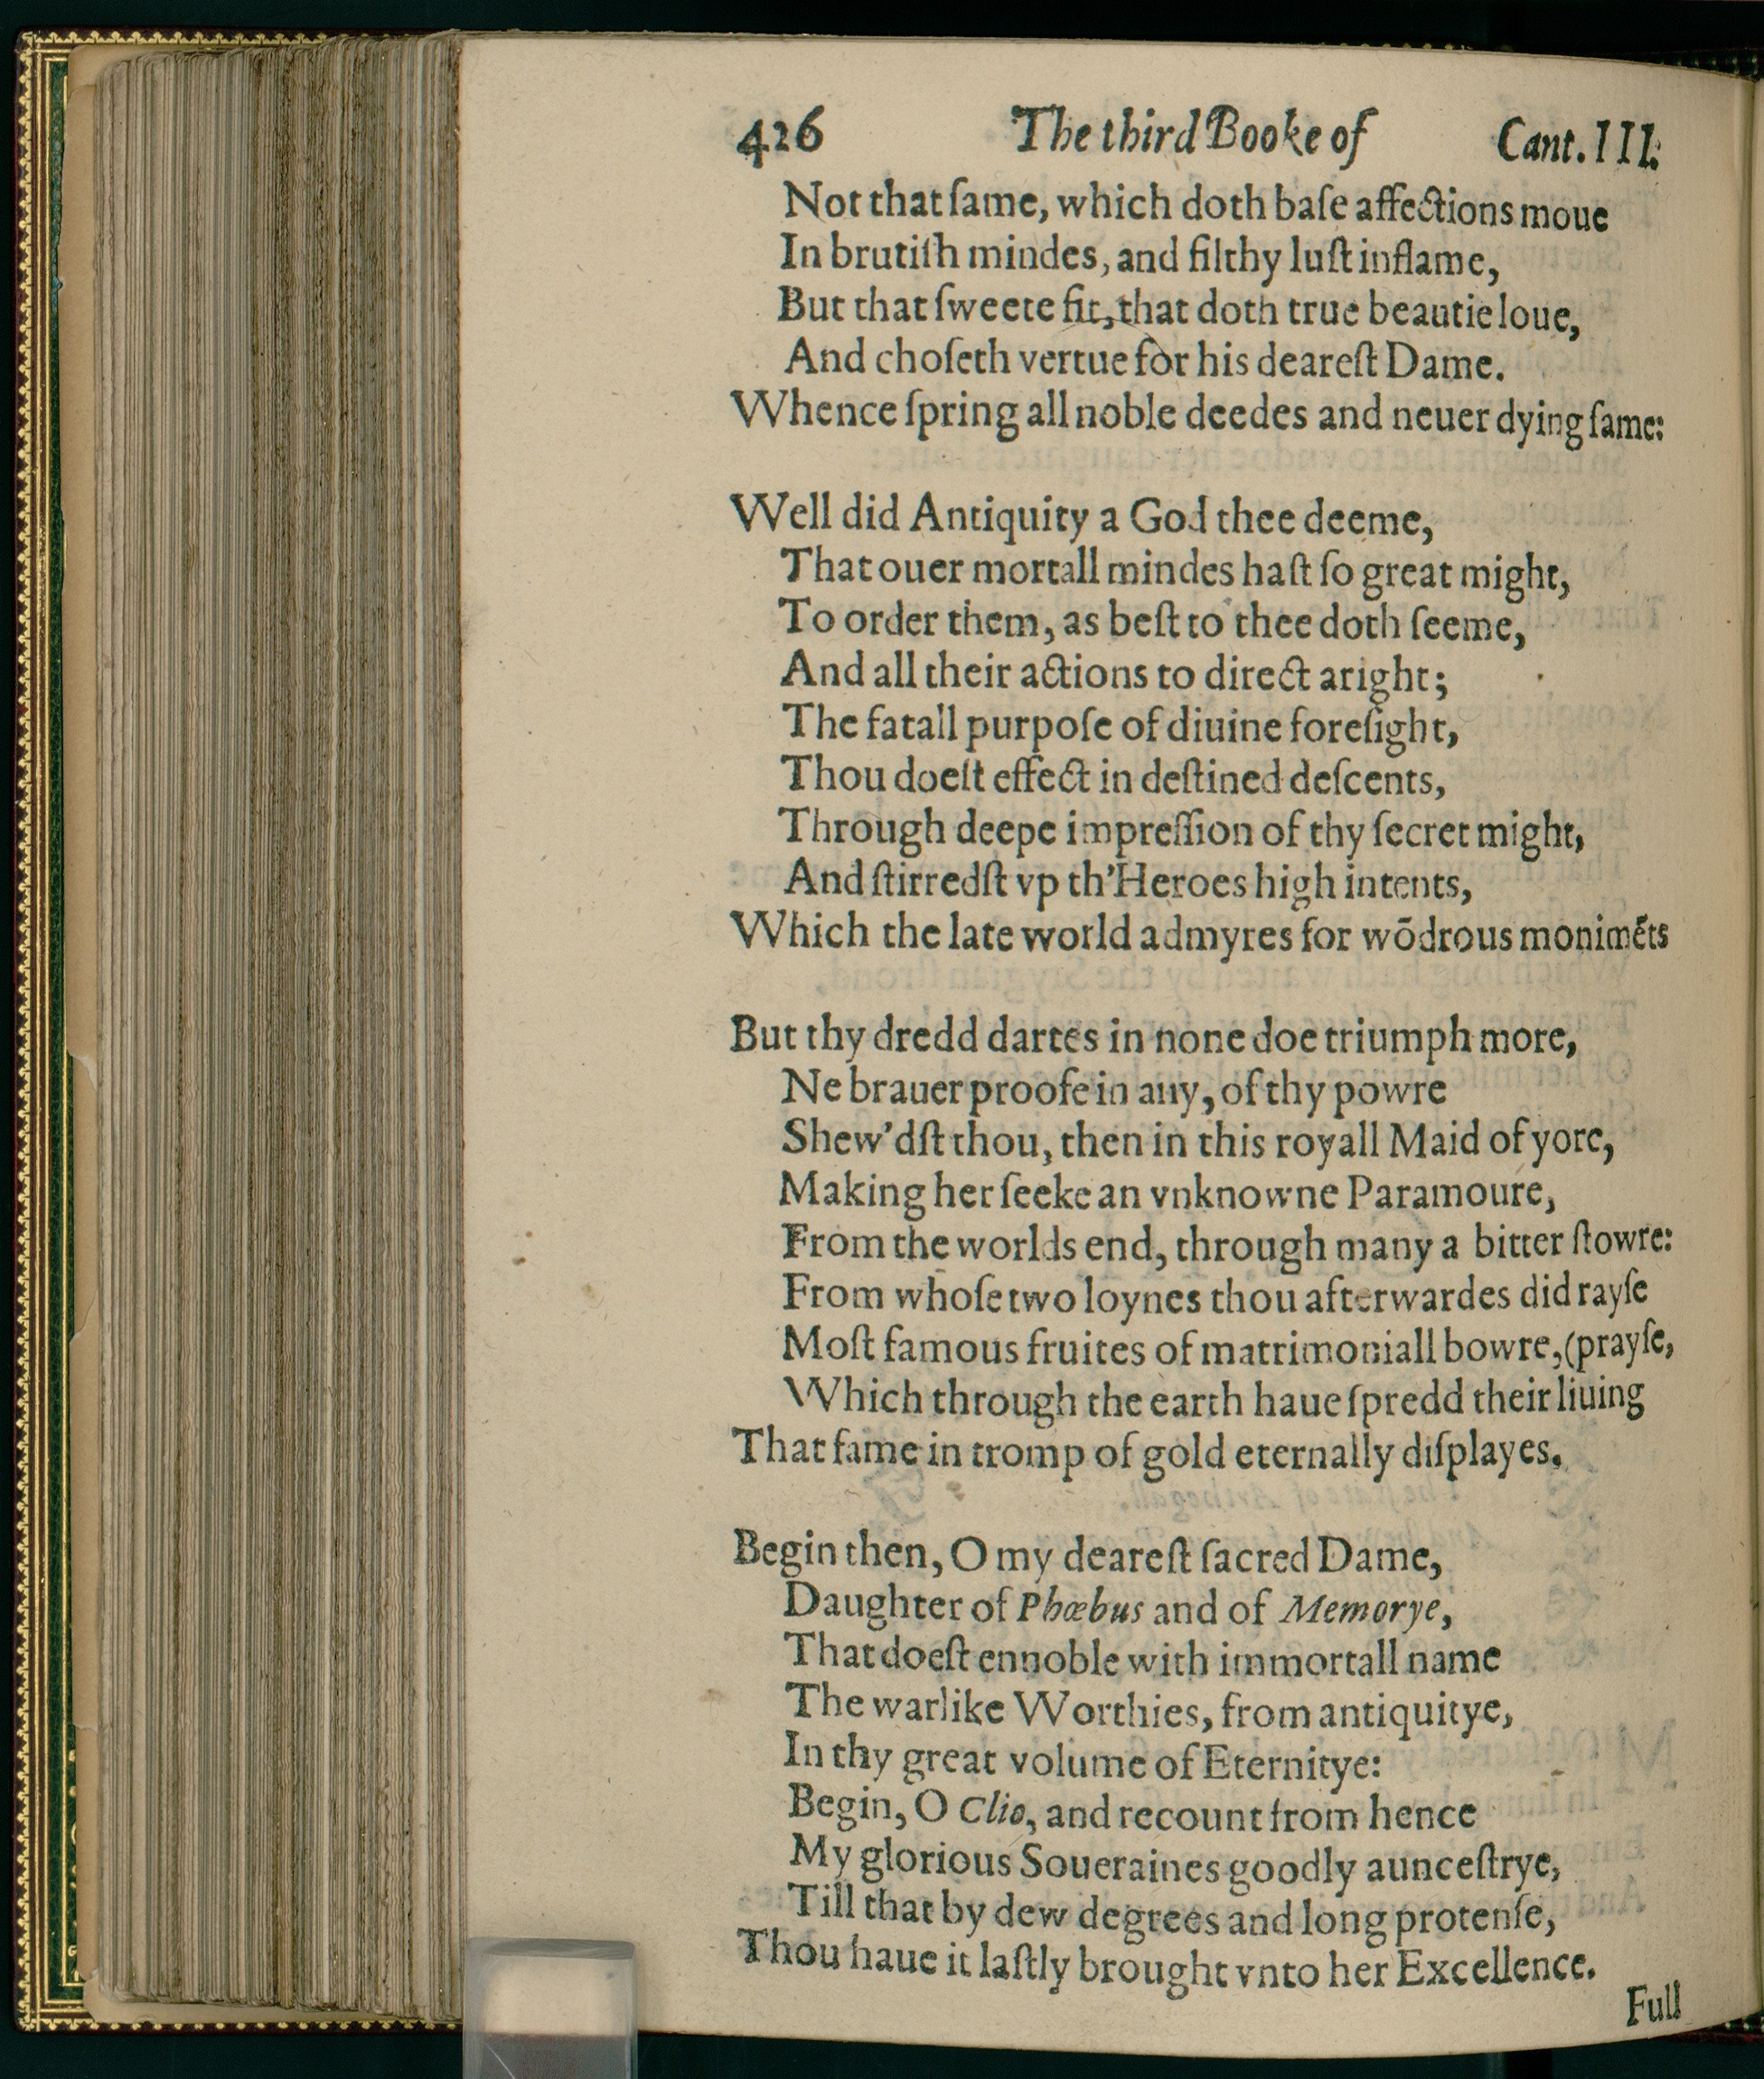 426 The third Booke of Cant. III.
Not that ſame, which doth baſe affections moue
In brutiſh mindes, and filthy luſt inflame,
But that ſweete fit, that doth true beautie loue,
And choſeth vertue for his deareſt Dame.
Whence ſpring all noble deedes and neuer dying fame:
Well did Antiquity a God thee deeme,
That ouer mortall mindes haſt ſo great might,
To order them, as beſt to thee doth ſeeme,
And all their actions to direct aright;
The fatall purpoſe of diuine foreſight,
Thou doeſt effect in deſtined deſcents,
Through deepe impreſſion of thy ſecret might,
And ſtirredſt vp th'Heroes high intents,
Which the late world admyres for wōdrous monimēts
But thy dredd dartes in none doe triumph more,
Ne brauer proofe in any, of thy powre
Shew'dſt thou, then in this royall Maid of yore,
Making her ſeeke an vnknowne Paramoure,
From the worlds end, through many a bitter ſtowre:
From whoſe two loynes thou afterwardes did rayſe
Moſt famous fruites of matrimoniall bowre, (prayſe,
Which through the earth haue ſpredd their liuing
That fame in tromp of gold eternally diſplayes.
Begin then, O my deareſt ſacred Dame,
Daughter of Phœbus and of Memorye,
That doeſt ennoble with immortall name
The warlike Worthies, from antiquitye,
In thy great volume of Eternitye:
Begin, O Clio, and recount from hence
My glorious Soueraines goodly aunceſtrye,
Till that by dew degrees and long protenſe,
Thou haue it laſtly brought vnto her Excellence.
Full